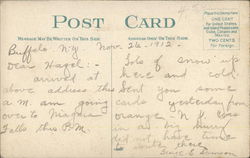 POST CARD
MESSAGE MAY BE WRITTEN ON THIS SIDE
ADDRESS ONLY ON THIS SIDE
Place the Stamp Here
ONE CENT
For United States
and Island Possessions
Cuba, Canada and
Mexico
TWO CENTS
For Foreign
Buffalo, N.Y. Nov. 26, 1912.
Dear Hazel:-
arrived at
above address this
A.M. am going
over to Niagara
Falls this P.M.
Lots of snow up
here and cold.
Sent you some
cards yesterday from
Orange, N.J. Was
in a big hurry
did not have time
to write there